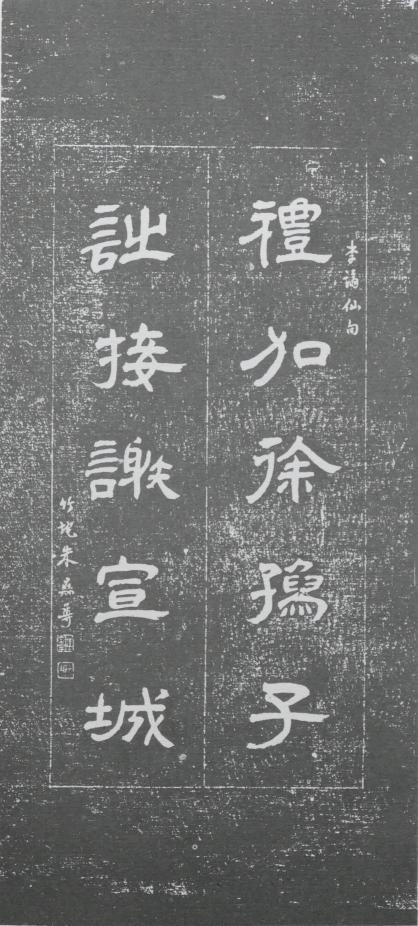 李謫仙句
禮加徐孺子
詩接謝宣城
竹垞朱彝尊